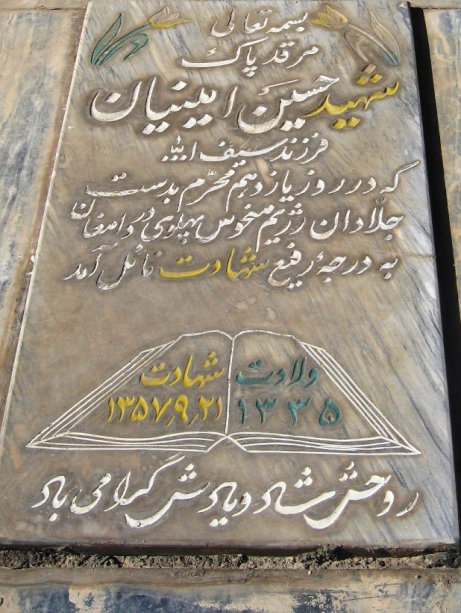 بسمه تعالی
مرقد پاک
شهید حسین امینیان
فرزند سیف الله
که در روز یازدهم محرّم بدست
جلّادان رژیم منحوس پهلوی در دامغان
به درجهٔ رفیع شهادت نائل آمد
ولادت
۱۳۳۵
شهادت
۱۳۵۷٫۹٫۲۱
روحش شاد و یادش گرامی باد